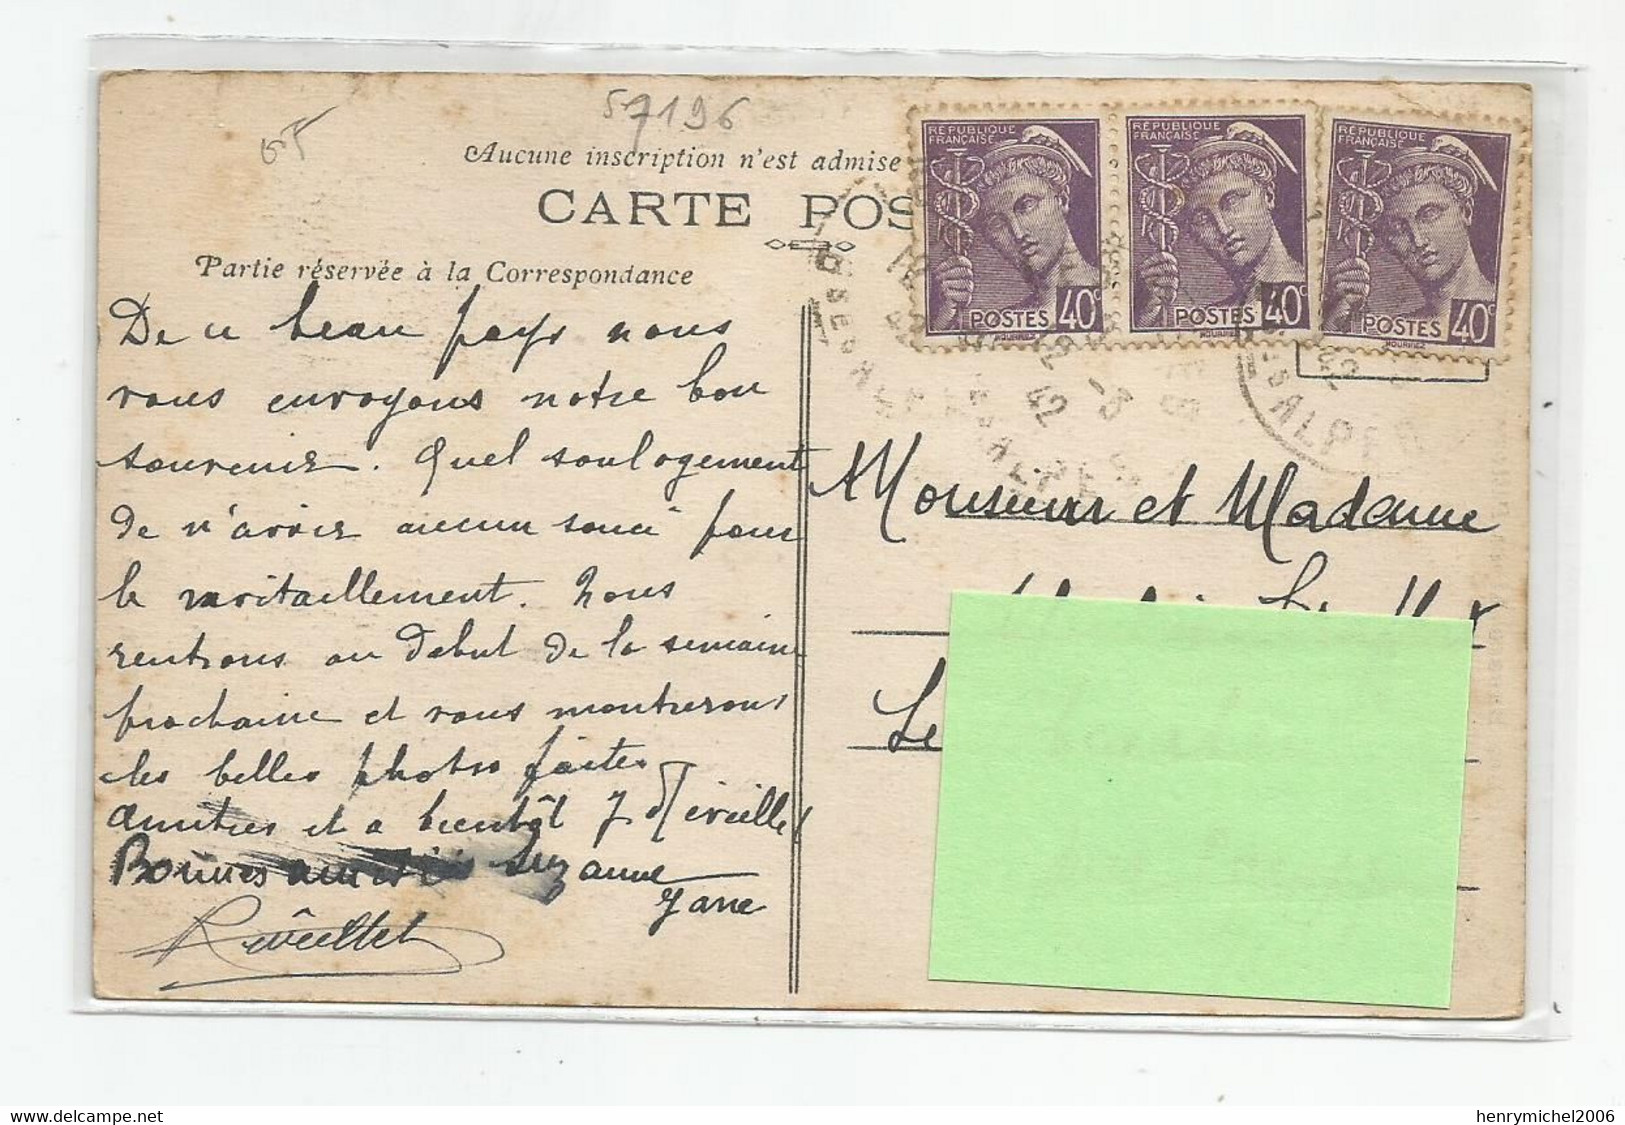 57196
Aucune inscription n'est admise
CARTE POS
Partie réservée à la Correspondance
RÉPUBLIQUE FRANÇAISE
POSTES 40c
RÉPUBLIQUE FRANÇAISE
POSTES 40c
RÉPUBLIQUE FRANÇAISE
POSTES 40c
42
ALPES
De ce beau pays nous
vous envoyons notre bon
souvenir. Quel soulagement
de n'avoir aucun souci pour
le ravitaillement. Nous
rentrons au début de la semaine
prochaine et vous montrerons
les belles photos faites
Amitiés et a bientôt
Bonnes amitiés Suzanne
Monsieur et Madame
Le
www.delcampe.net
henrymichel2006